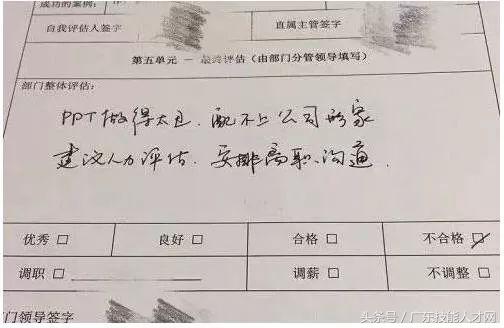 成功的案例:
自我评估人签字 直属主管签字
第五单元 — 最终评估(由部门分管领导填写)
部门整体评估:
PPT做得太丑.配不上公司形象
建议人力评估.安排离职沟通.
优秀 □ 良好 □ 合格 □ 不合格 ☑
调职 □ 调薪 □ 不调整 □
门领导签字
头条号/广东技能人才网